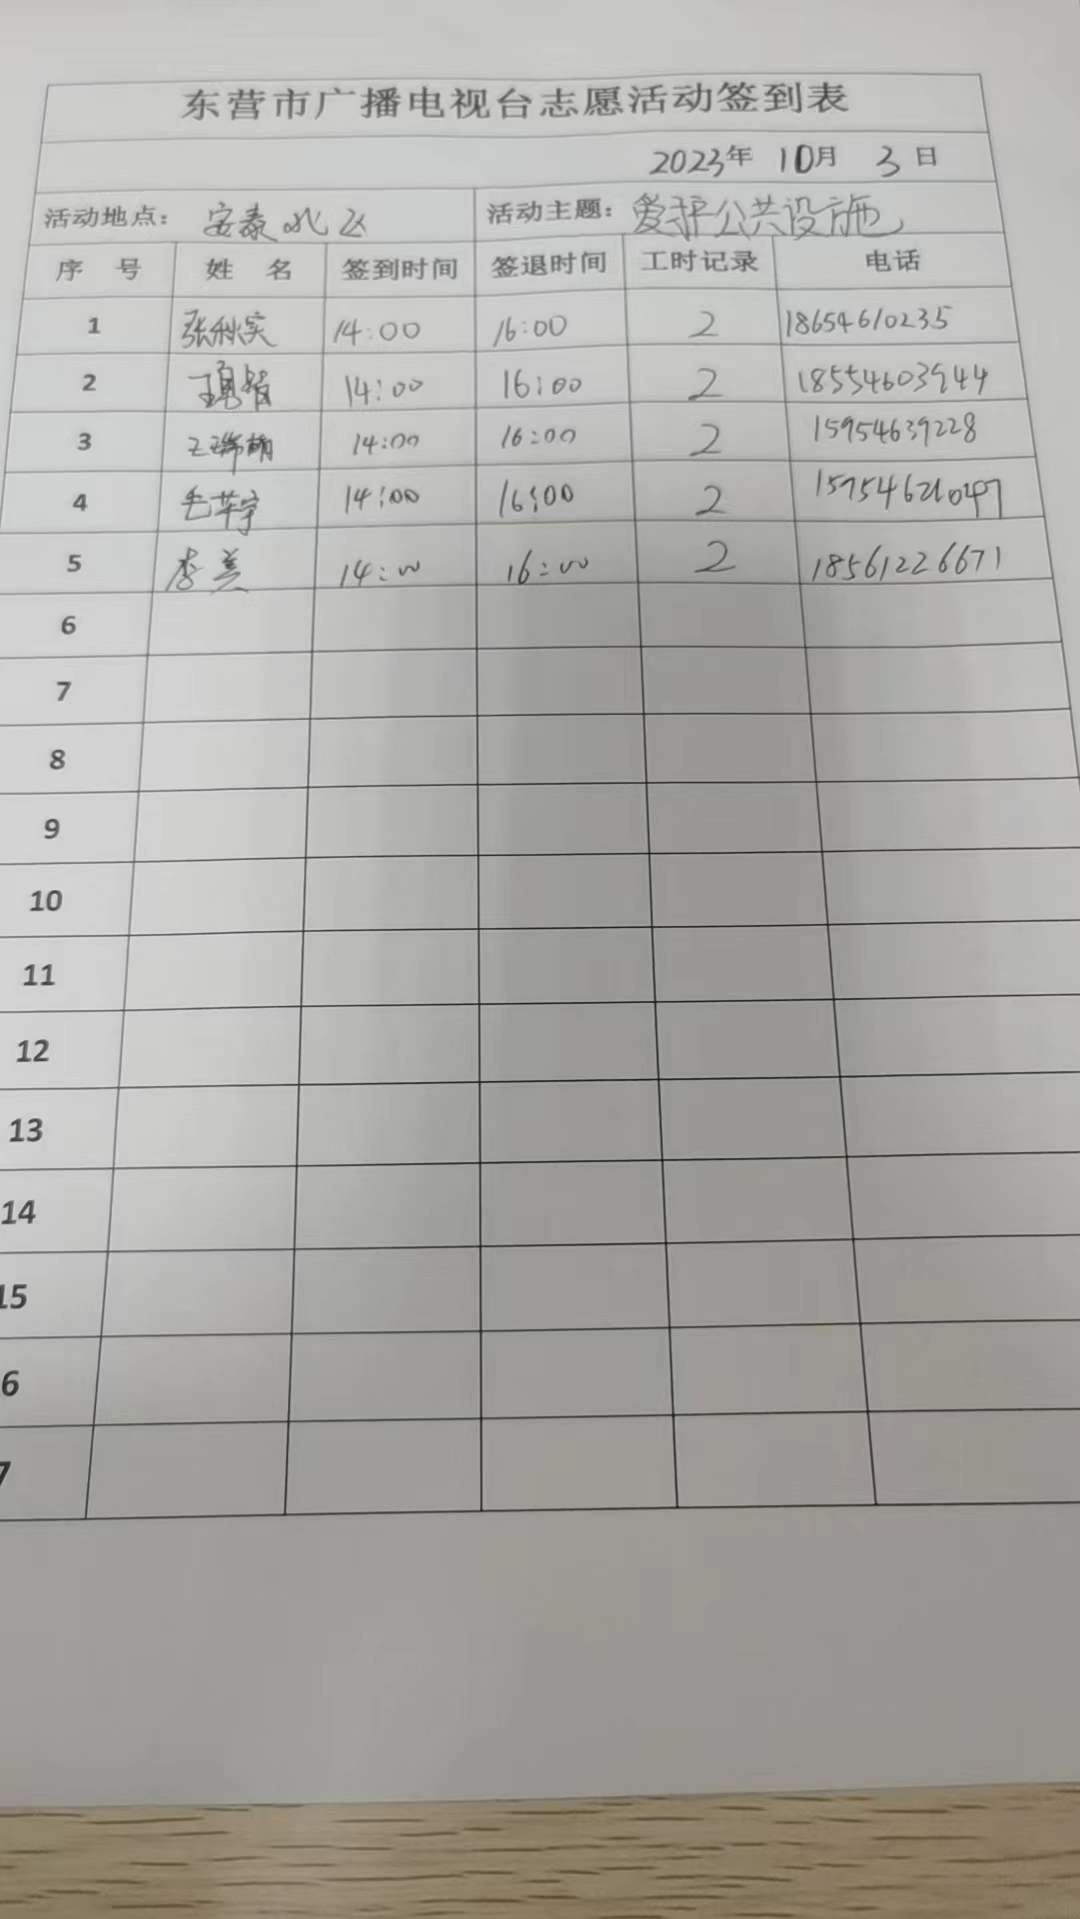 东营市广播电视台志愿活动签到表
2023年 10月 3日
活动地点： 安泰北区 活动主题： 爱护公共设施
序 号 姓 名 签到时间 签退时间 工时记录 电话
1 张秋实 14:00 16:00 2 18654610235
2 14:00 16:00 2 18554603944
3 14:00 16:00 2 15954639228
4 14:00 16:00 2
5 李美 14:00 16:00 2 18561226671
6
7
8
9
10
11
12
13
14
15
6
7